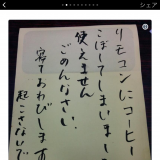 シェア
リモコンにコーヒー
こぼしてしまいました
使えません
ごめんなさい、
寝ておわびします
起こさないで